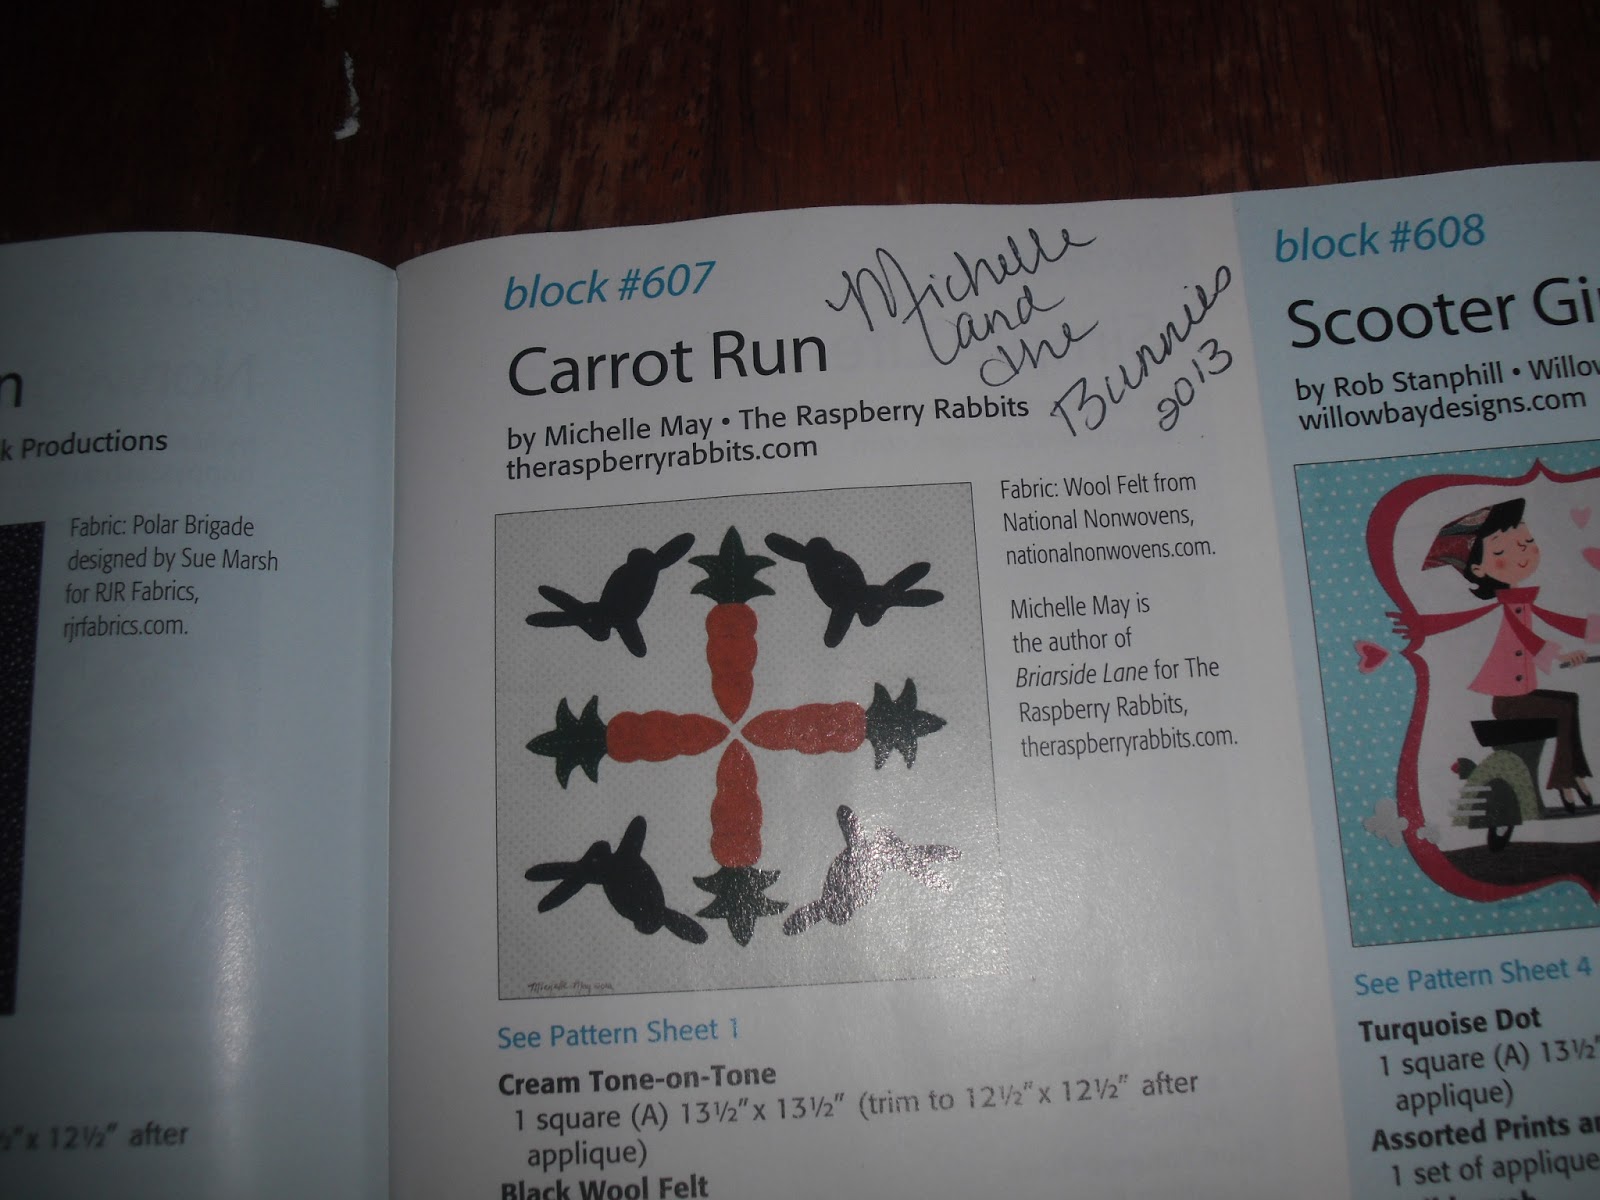 n
k Productions
Fabric: Polar Brigade
designed by Sue Marsh
for RJR Fabrics,
rjrfabrics.com.
½" x 12½" after
block #607
Carrot Run
by Michelle May • The Raspberry Rabbits
theraspberryrabbits.com
Michelle
and
the
Bunnies
2013
Fabric: Wool Felt from
National Nonwovens,
nationalnonwovens.com.
Michelle May is
the author of
Briarside Lane for The
Raspberry Rabbits,
theraspberryrabbits.com.
Michelle May
See Pattern Sheet 1
Cream Tone-on-Tone
1 square (A) 13½" x 13½" (trim to 12½" x 12½" after
applique)
Black Wool Felt
block #608
Scooter Gi
by Rob Stanphill • Willow
willowbaydesigns.com
See Pattern Sheet 4
Turquoise Dot
1 square (A) 13½"
applique)
Assorted Prints an
1 set of applique